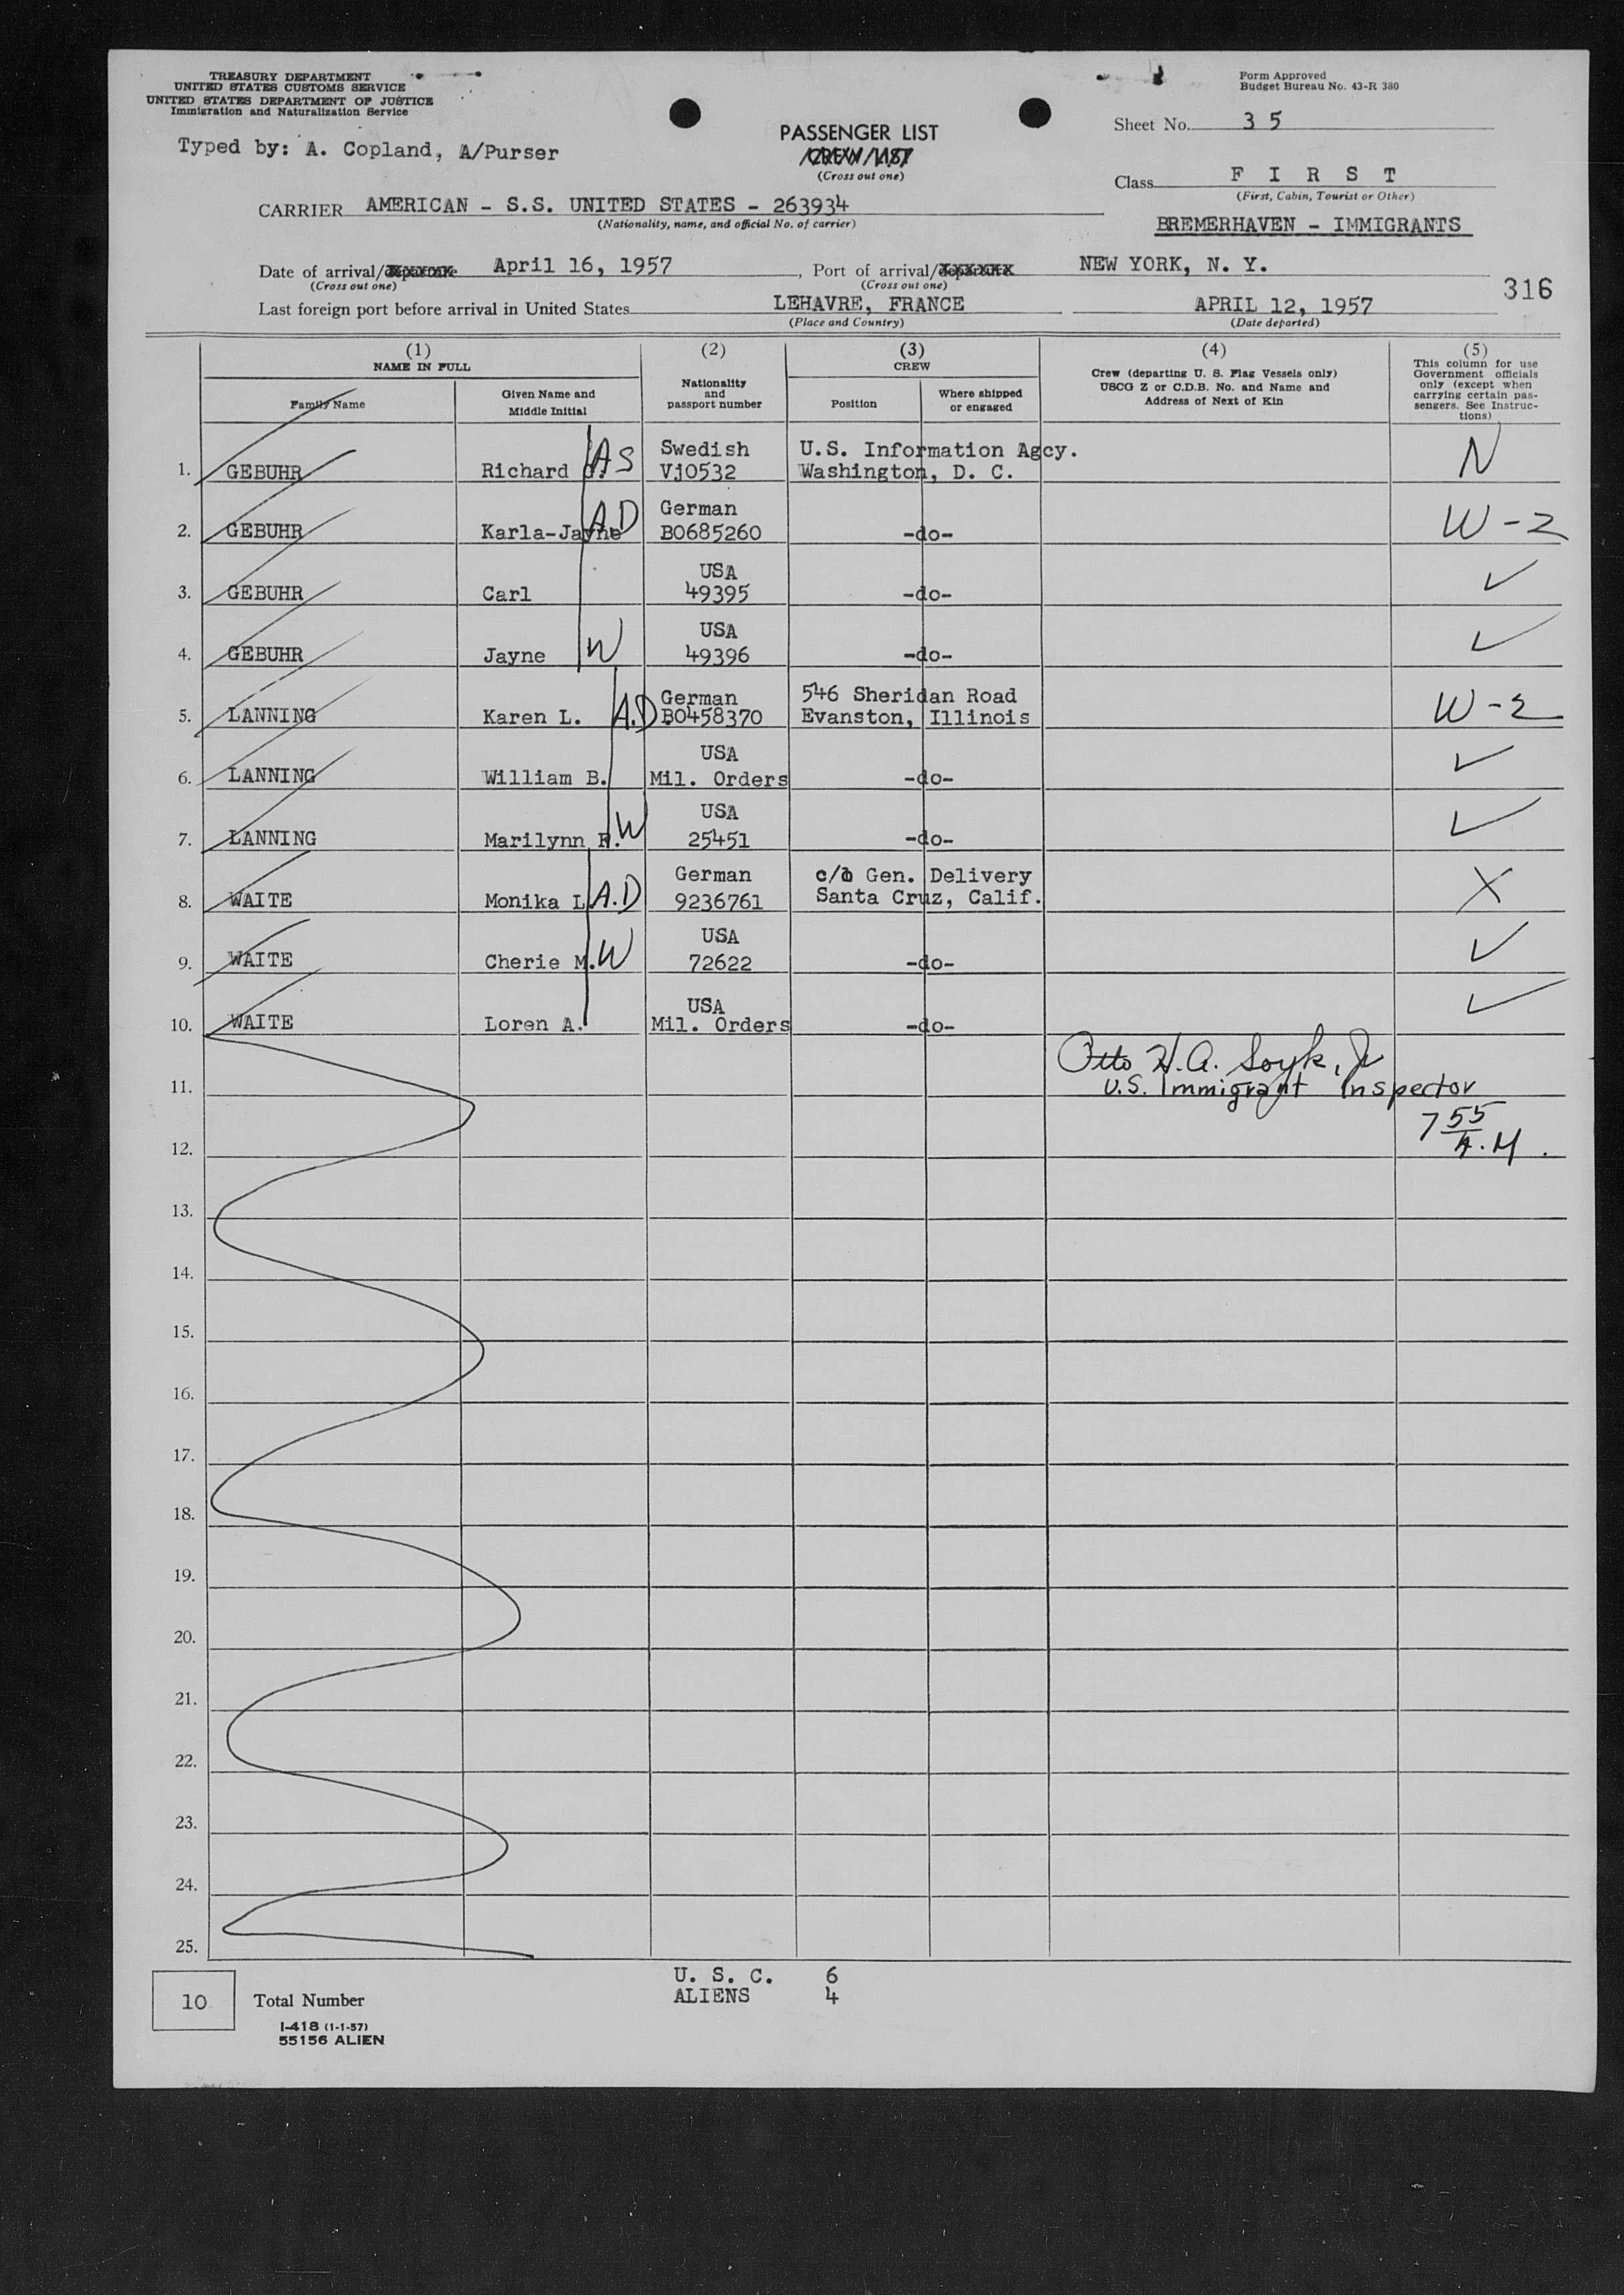 TREASURY DEPARTMENT
UNITED STATES CUSTOMS SERVICE
UNITED STATES DEPARTMENT OF JUSTICE
Immigration and Naturalization Service
Typed by: A. Copland, A/Purser
PASSENGER LIST
CREW LIST
(Cross out one)
Form Approved
Budget Bureau No. 43-R 380
Sheet No. 3 5
Class F I R S T
(First, Cabin, Tourist or Other)
CARRIER AMERICAN - S.S. UNITED STATES - 263934
(Nationality, name, and official No. of carrier)
BREMERHAVEN - IMMIGRANTS
Date of arrival/departure April 16, 1957, Port of arrival/departure NEW YORK, N. Y.
(Cross out one) (Cross out one)
316
Last foreign port before arrival in United States LEHAVRE, FRANCE APRIL 12, 1957
(Place and Country) (Date departed)
(1) (2) (3) (4) (5)
NAME IN FULL
Family Name
Given Name and
Middle Initial
Nationality
and
passport number
CREW
Position
Where shipped
or engaged
Crew (departing U. S. Flag Vessels only)
USCG Z or C.D.B. No. and Name and
Address of Next of Kin
This column for use
Government officials
only (except when
carrying certain pas-
sengers. See Instruc-
tions)
Swedish U.S. Information Agcy.
1. GEBUHR Richard AS Vj0532 Washington, D. C. N
German
2. GEBUHR Karla-Jayne A.D B0685260 -do- W-2
USA
3. GEBUHR Carl 49395 -do- ✓
USA
4. GEBUHR Jayne W 49396 -do- ✓
German 546 Sheridan Road
5. LANNING Karen L. A.D B0458370 Evanston, Illinois W-2
USA
6. LANNING William B. Mil. Orders -do- ✓
USA
7. LANNING Marilynn W 25451 -do- ✓
German c/o Gen. Delivery
8. WAITE Monika L A.D 9236761 Santa Cruz, Calif. X
USA
9. WAITE Cherie M. W 72622 -do- ✓
USA
10. WAITE Loren A. Mil. Orders -do- ✓
Otto H.A. Soyk, Jr
11. U.S. Immigrant Inspector
12. 7 55 A.M.
13.
14.
15.
16.
17.
18.
19.
20.
21.
22.
23.
24.
25.
U. S. C. 6
ALIENS 4
10 Total Number
I-418 (1-1-57)
55156 ALIEN